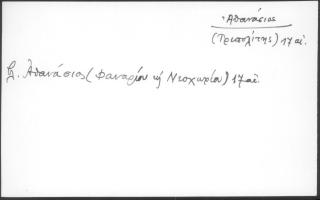 Ἀθανάσιος
(Τριπολίτης) 17 αἰ.
βλ. Ἀθανάσιος (Φαναρίου ἢ Νεοχωρίου) 17 αἰ.